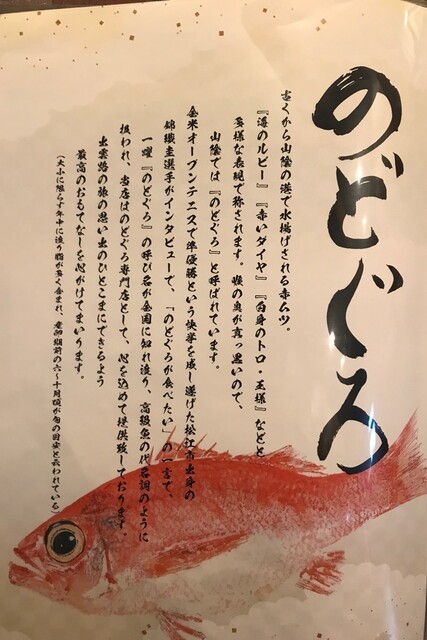 のどぐろ
古くから山陰の港で水揚げされる赤ムツ。
『海のルビー』『赤いダイヤ』『白身のトロ・王様』などと
多様な表現で称されます。喉の奥が真っ黒いので、
山陰では『のどぐろ』と呼ばれています。
全米オープンテニスで準優勝という快挙を成し遂げた松江市出身の
錦織圭選手がインタビューで、「のどぐろが食べたい」の一言で、
一躍『のどぐろ』の呼び名が全国に知れ渡り、高級魚の代名詞のように
扱われ、当店はのどぐろ専門店として、心を込めて提供致しております。
出雲路の旅の思い出のひとこまにできるよう
最高のおもてなしを心がけてまいります。
（大小に限らず年中に渡り脂が多く含まれ、産卵期前の六～十月頃が旬の目安と云われている）